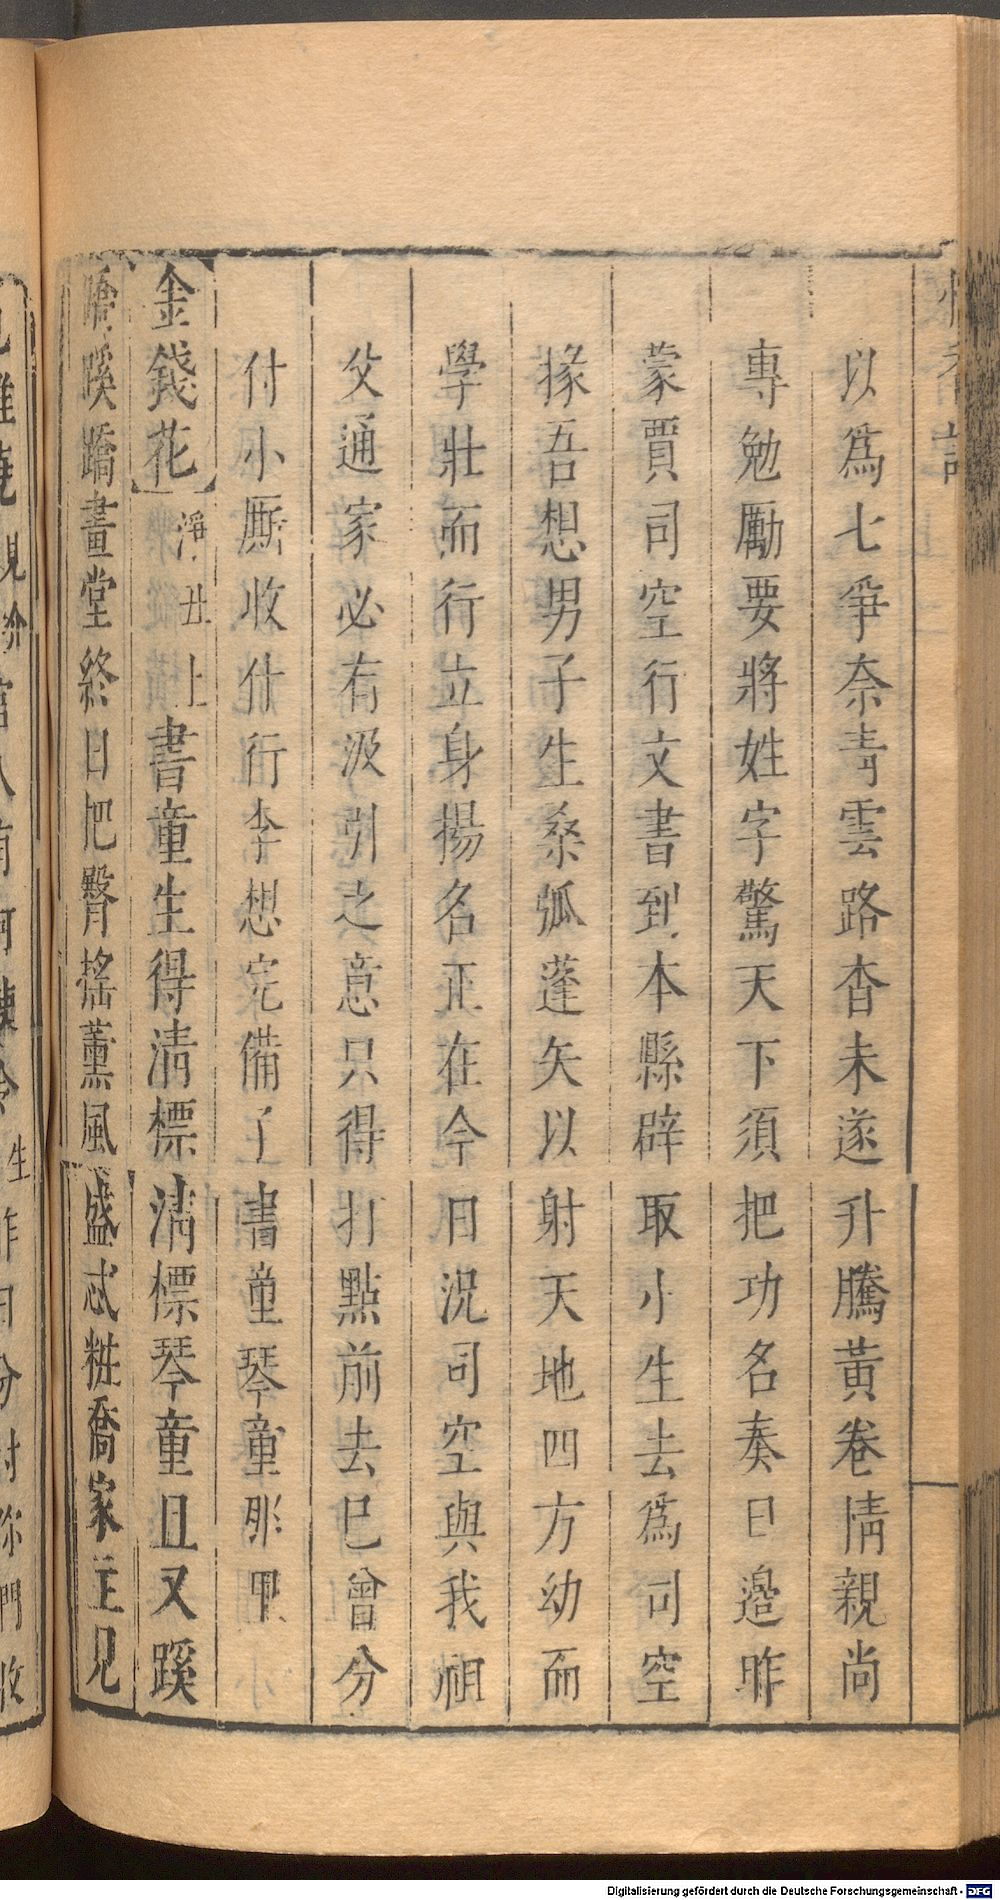 以爲七爭奈青雲路杳未遂升騰黃卷情親尚
專勉勵要將姓字驚天下須把功名奏日邉昨
蒙賈司空行文書到本縣辟取小生去爲司空
掾吾想男子生桑弧蓬矢以射天地四方幼而
學壯而行立身揚名正在今日況司空與我祖
父通家必有汲引之意只得打點前去已曾分
付小厮收什行李想完備了書童琴童那里小
金錢花淨丑上書童生得清標清標琴童且又蹊
蹺蹊蹺畫堂終日把臀搖薰風盛忒粧喬家主見
生昨日分付你們收
Digitalisierung gefördert durch die Deutsche Forschungsgemeinschaft - DFG